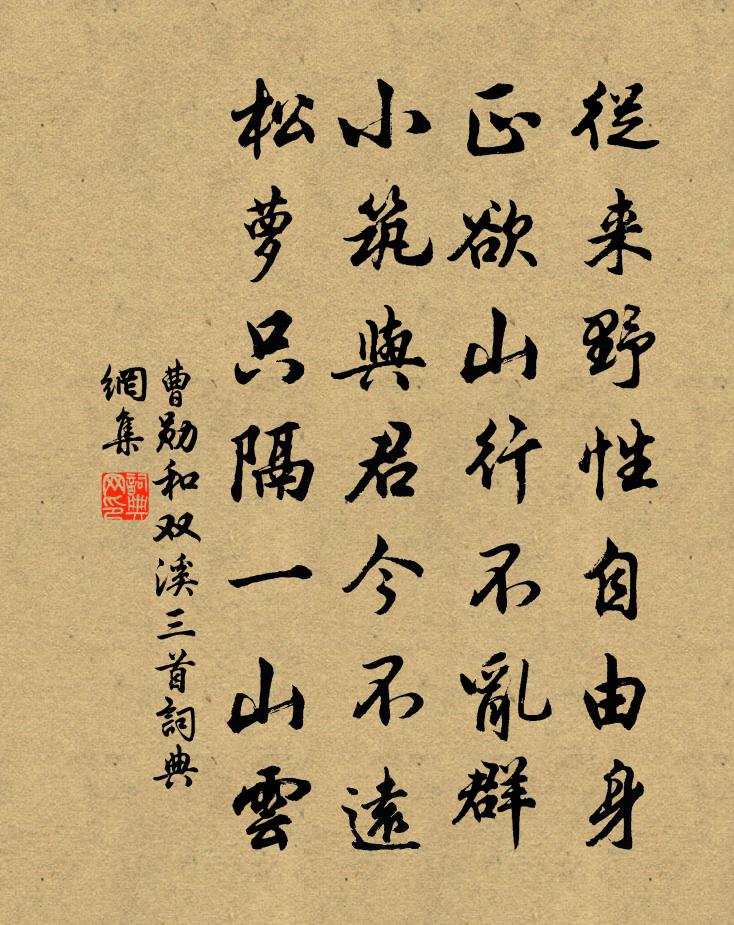 從来野性自由身
正欲山行不亂群
小筑與君今不遠
松萝只隔一山雲
曹勛和双溪三首詞典
網集
詞典
网印